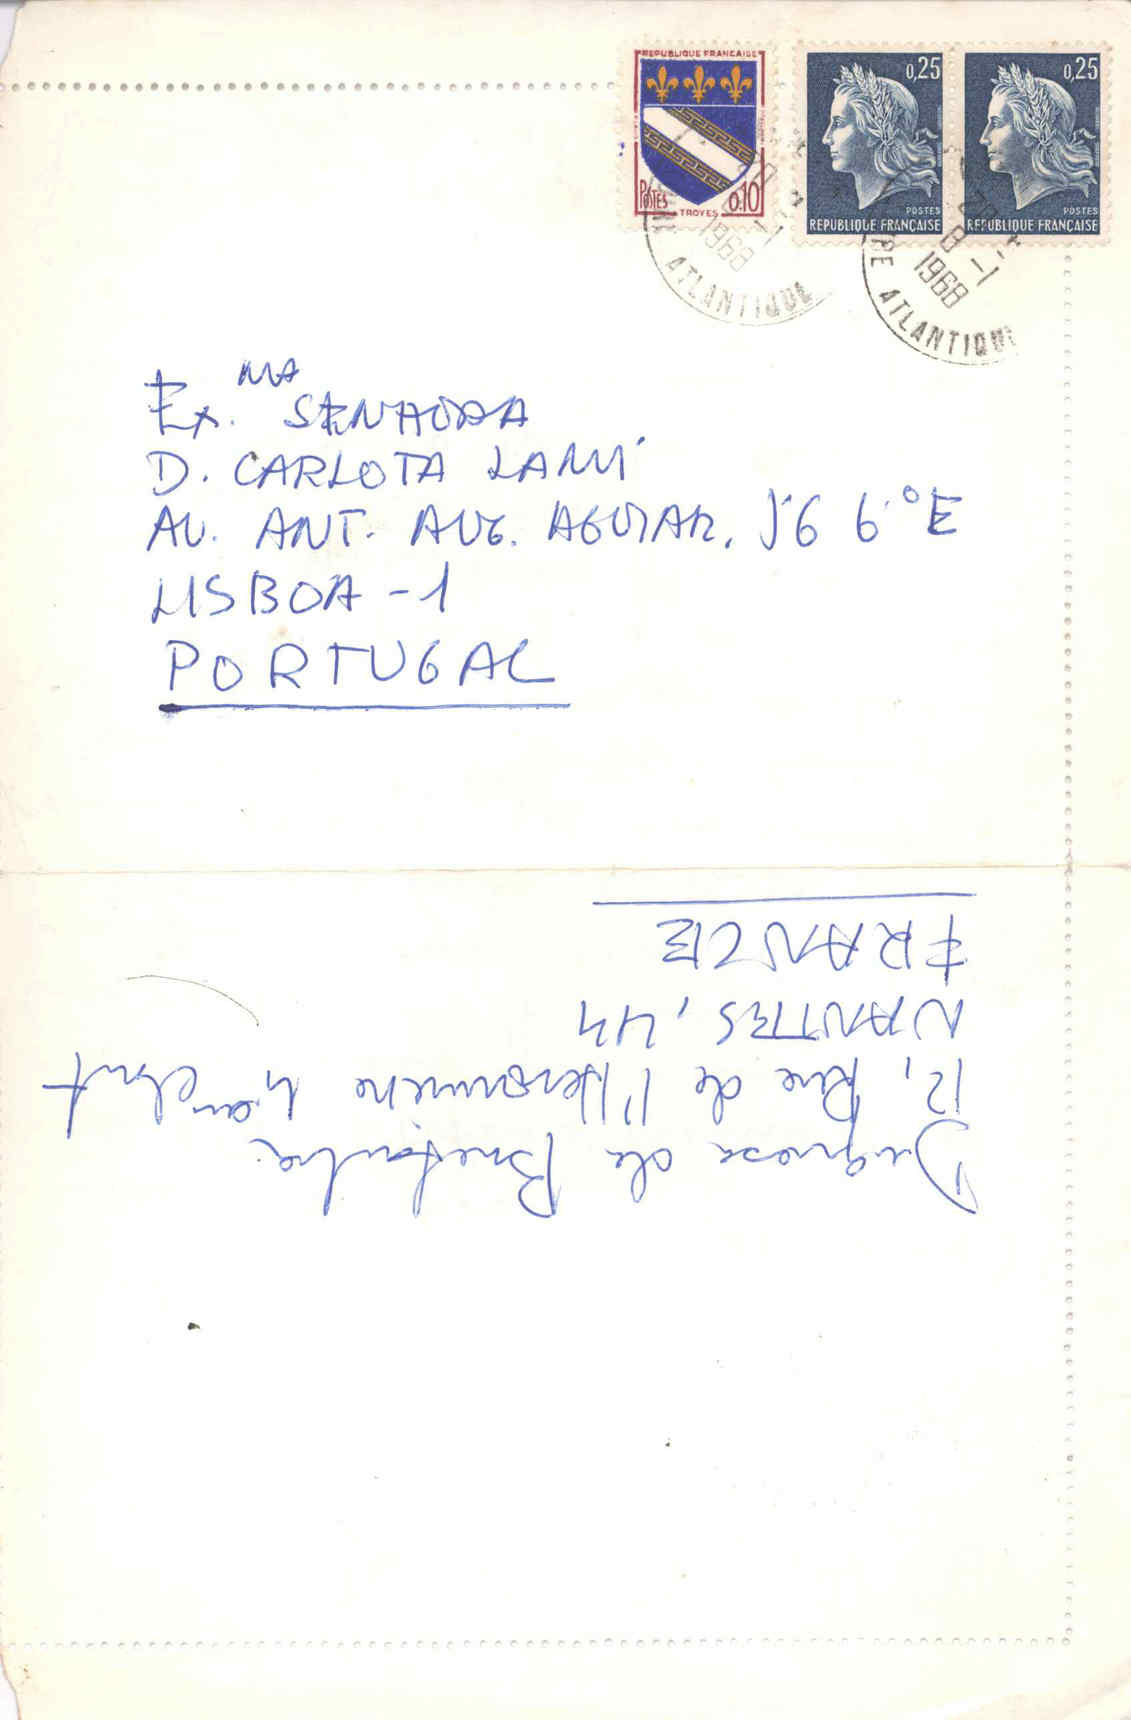 REPUBLIQUE FRANCAISE
POSTES 0,10
TROYES
0,25
POSTES
REPUBLIQUE FRANÇAISE
0,25
POSTES
REPUBLIQUE FRANÇAISE
8 -1
1968
RE ATLANTIQUE
8 -1
1968
RE ATLANTIQUE
Ex.MA SENHORA
D. CARLOTA LAMI
AV. ANT. AUG. AGUIAR, 56 6.ºE
LISBOA - 1
PORTUGAL
de
12, Rue de l'Heronnière
NANTES, 44
FRANCE